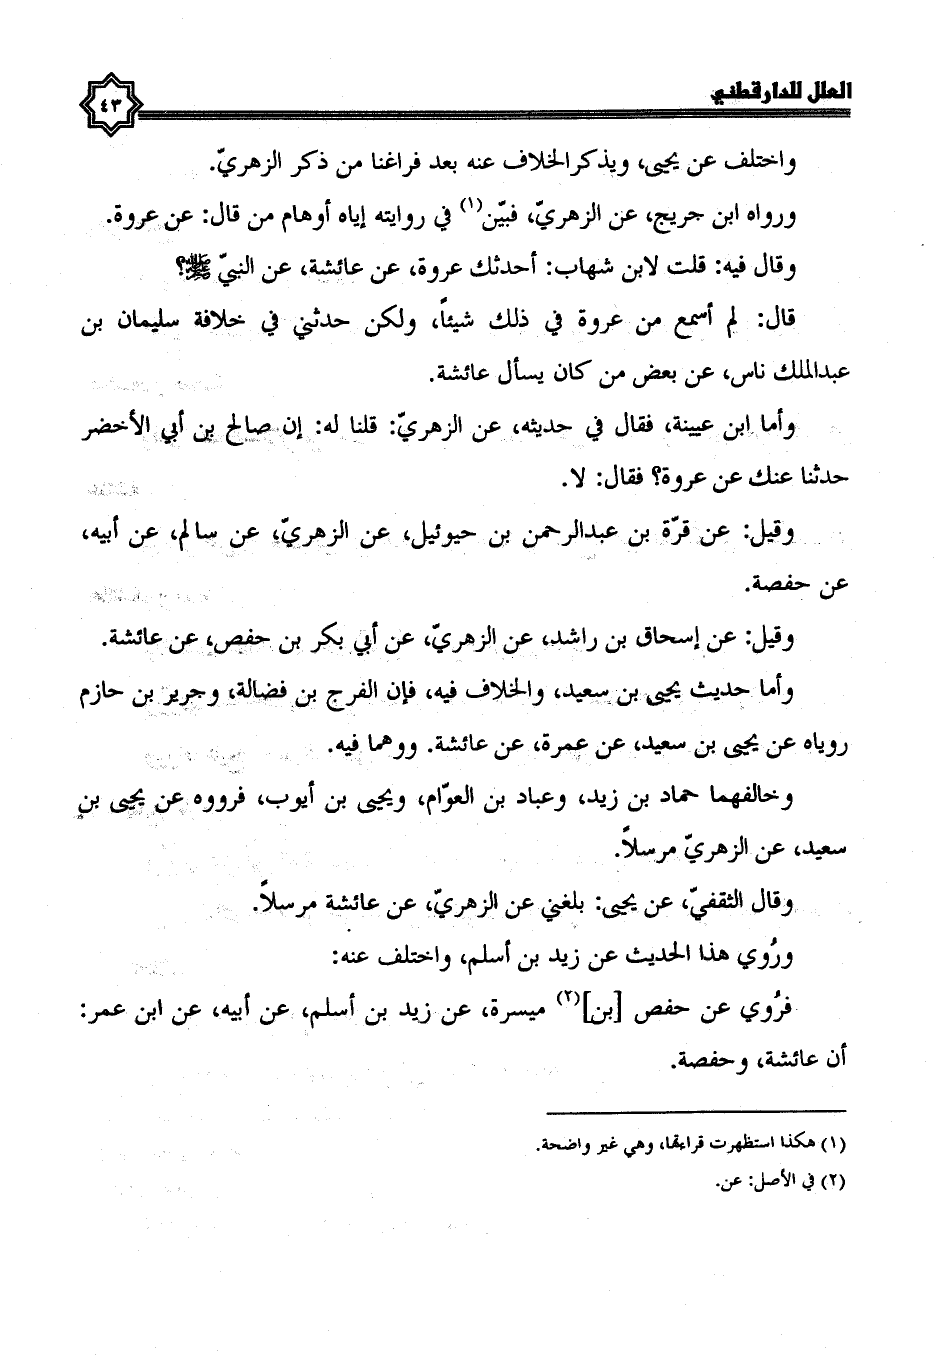 العلل للدارقطني
٤٣
واختلف عن يحيى، ويذكر الخلاف عنه بعد فراغنا من ذكر الزهريّ.
ورواه ابن جريج، عن الزهريّ، فبيّن(١) في روايته إياه أوهام من قال: عن عروة.
وقال فيه: قلت لابن شهاب: أحدثك عروة، عن عائشة، عن النبيّ ﷺ؟
قال: لم أسمع من عروة في ذلك شيئاً، ولكن حدثني في خلافة سليمان بن
عبدالملك ناس، عن بعض من كان يسأل عائشة.
وأما ابن عيينة، فقال في حديثه، عن الزهريّ: قلنا له: إن صالح بن أبي الأخضر
حدثنا عنك عن عروة؟ فقال: لا.
وقيل: عن قرّة بن عبدالرحمن بن حيوئيل، عن الزهريّ، عن سالم، عن أبيه،
عن حفصة.
وقيل: عن إسحاق بن راشد، عن الزهريّ، عن أبي بكر بن حفص، عن عائشة.
وأما حديث يحيى بن سعيد، والخلاف فيه، فإن الفرج بن فضالة، وجرير بن حازم
روياه عن يحيى بن سعيد، عن عمرة، عن عائشة. ووهما فيه.
وخالفهما حماد بن زيد، وعباد بن العوّام، ويحيى بن أيوب، فرووه عن يحيى بن
سعيد، عن الزهريّ مرسلاً.
وقال الثقفيّ، عن يحيى: بلغني عن الزهريّ، عن عائشة مرسلاً.
ورُوي هذا الحديث عن زيد بن أسلم، واختلف عنه:
فرُوي عن حفص [بن](٢) ميسرة، عن زيد بن أسلم، عن أبيه، عن ابن عمر:
أن عائشة، وحفصة.
(١) هكذا استظهرت قراءتها، وهي غير واضحة.
(٢) في الأصل: عن.